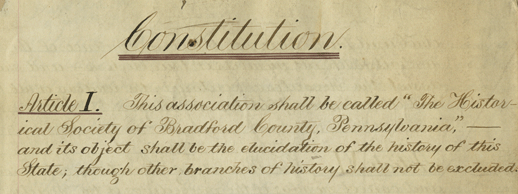 Constitution.
Article I. This association shall be called "The Histor-
ical Society of Bradford County, Pennsylvania," —
and its object shall be the elucidation of the history of this
State; though other branches of history shall not be excluded.